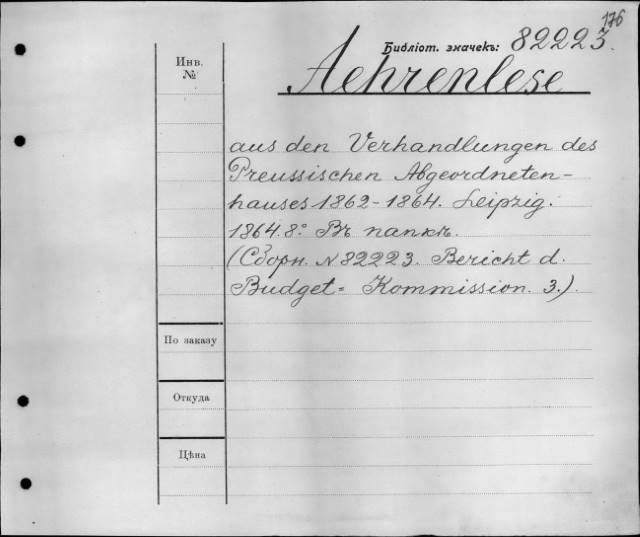 176
Библіот. значекъ: 82223.
Инв.
№
Aehrenlese
aus den Verhandlungen des
Preussischen Abgeordneten-
hauses 1862-1864. Leipzig.
1864. 8° Въ папкѣ.
(Сборн. N 82223. Bericht d.
Budget= Kommission. 3.)
По заказу
Откуда
Цѣна